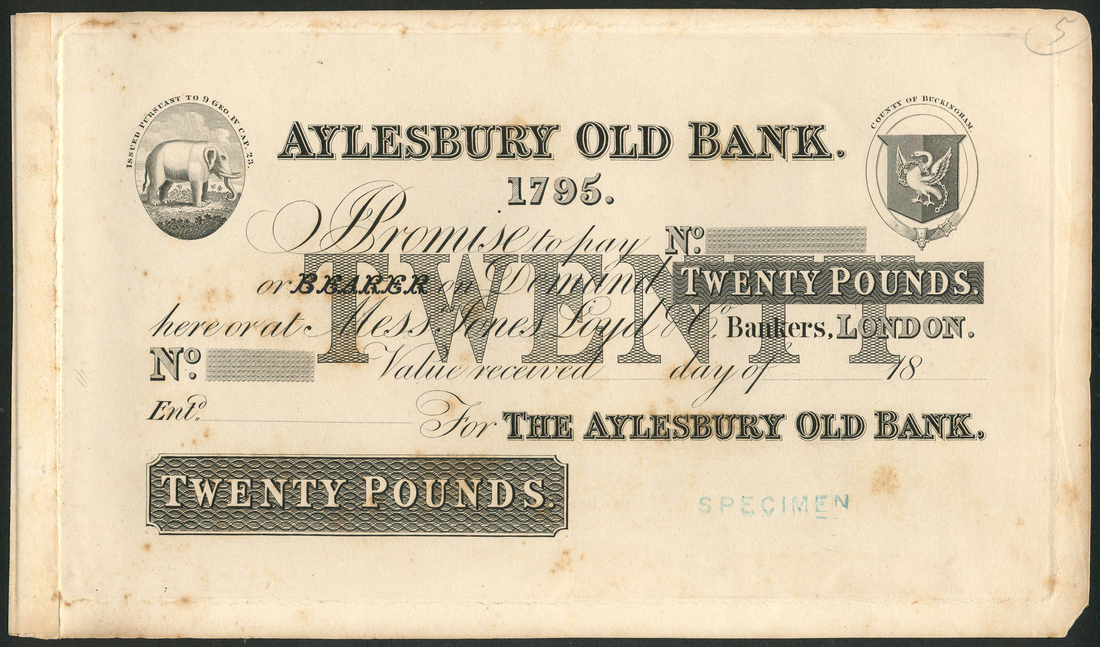 5
ISSUED PURSUANT TO 9 GEO. IV CAP. 23.
COUNTY OF BUCKINGHAM.
AYLESBURY OLD BANK.
1795.
I Promise to pay No.
or BEARER on Demand TWENTY POUNDS.
TWENTY
here or at Mess.rs Jones Loyd & Co. Bankers, LONDON.
No. Value received day of 18
Entd. For THE AYLESBURY OLD BANK.
TWENTY POUNDS.
SPECIMEN